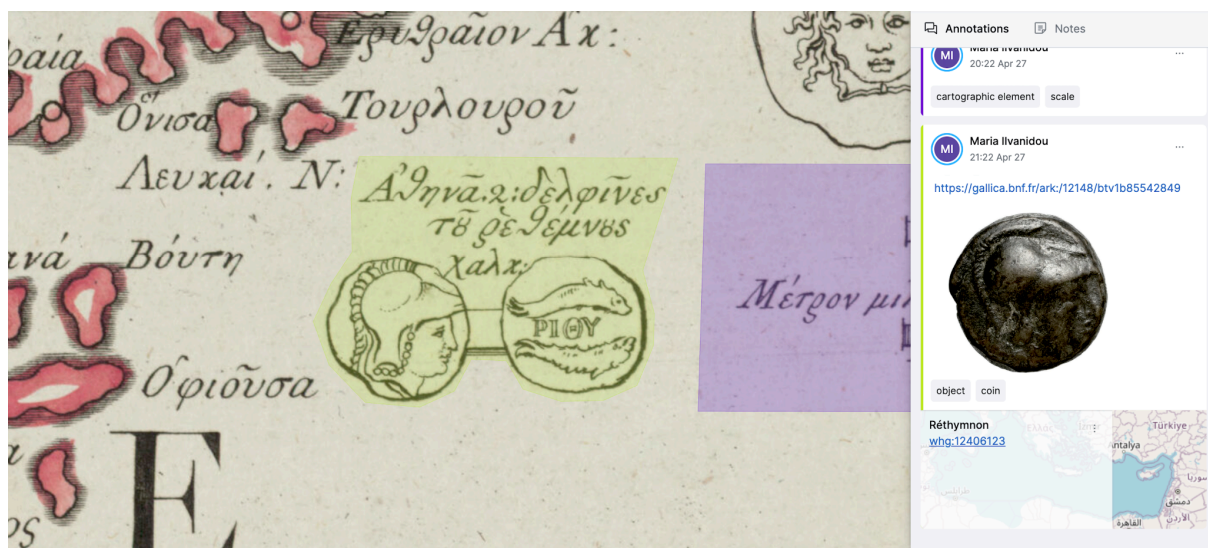 Ἐρυθραῖον Ἀκ:
ραία
Ὄνισα
Τουρλουροῦ
Λευκαί. Ν:
Ἀθηνᾶ.2:δελφῖνες
τȣ ῥεθέμνȣς
χαλκ:
ανά
Βούτη
ΡΙΘΥ
Μέτρον μι
Ὀφιοῦσα
Ε
ος
Annotations
Notes
Maria Ilvanidou
20:22 Apr 27
cartographic element
scale
MI
Maria Ilvanidou
21:22 Apr 27
https://gallica.bnf.fr/ark:/12148/btv1b85542849
object
coin
Réthymnon
whg:12406123
Türkiye
ntalya
دمشق
الأردن
القاهرة